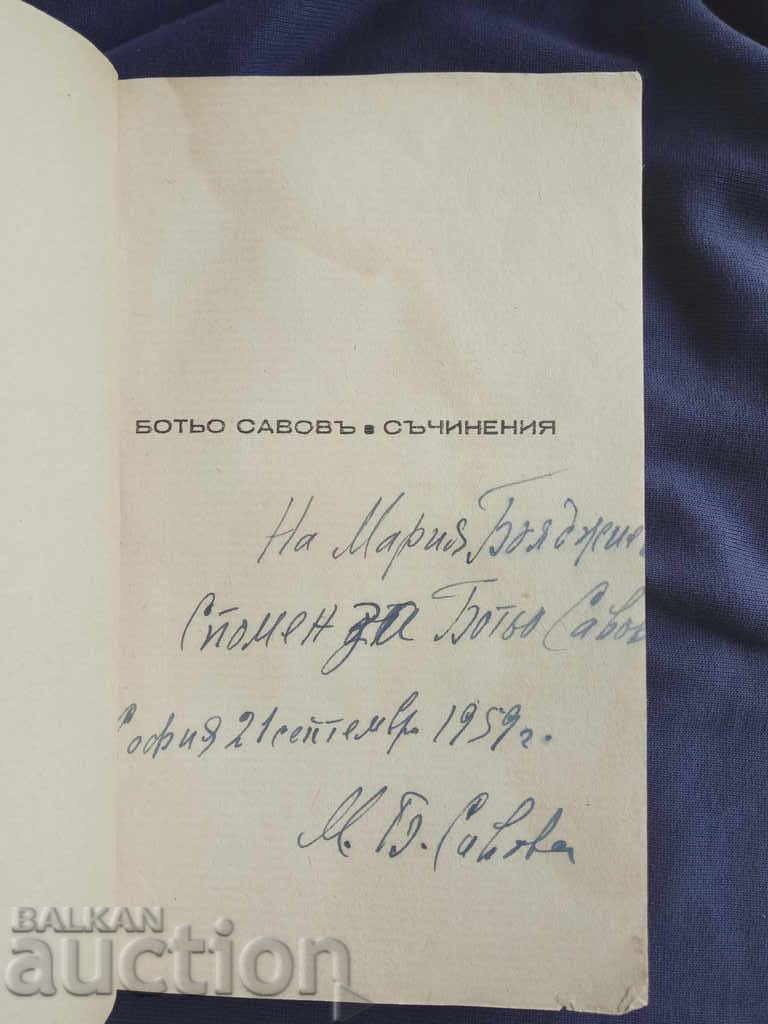 БОТЬО САВОВЪ • СЪЧИНЕНИЯ
На Мария Бояджие
Спомен за Ботьо Савов
София 21 септемвр. 1959 г.
М. Б. Савова
BALKAN
auction